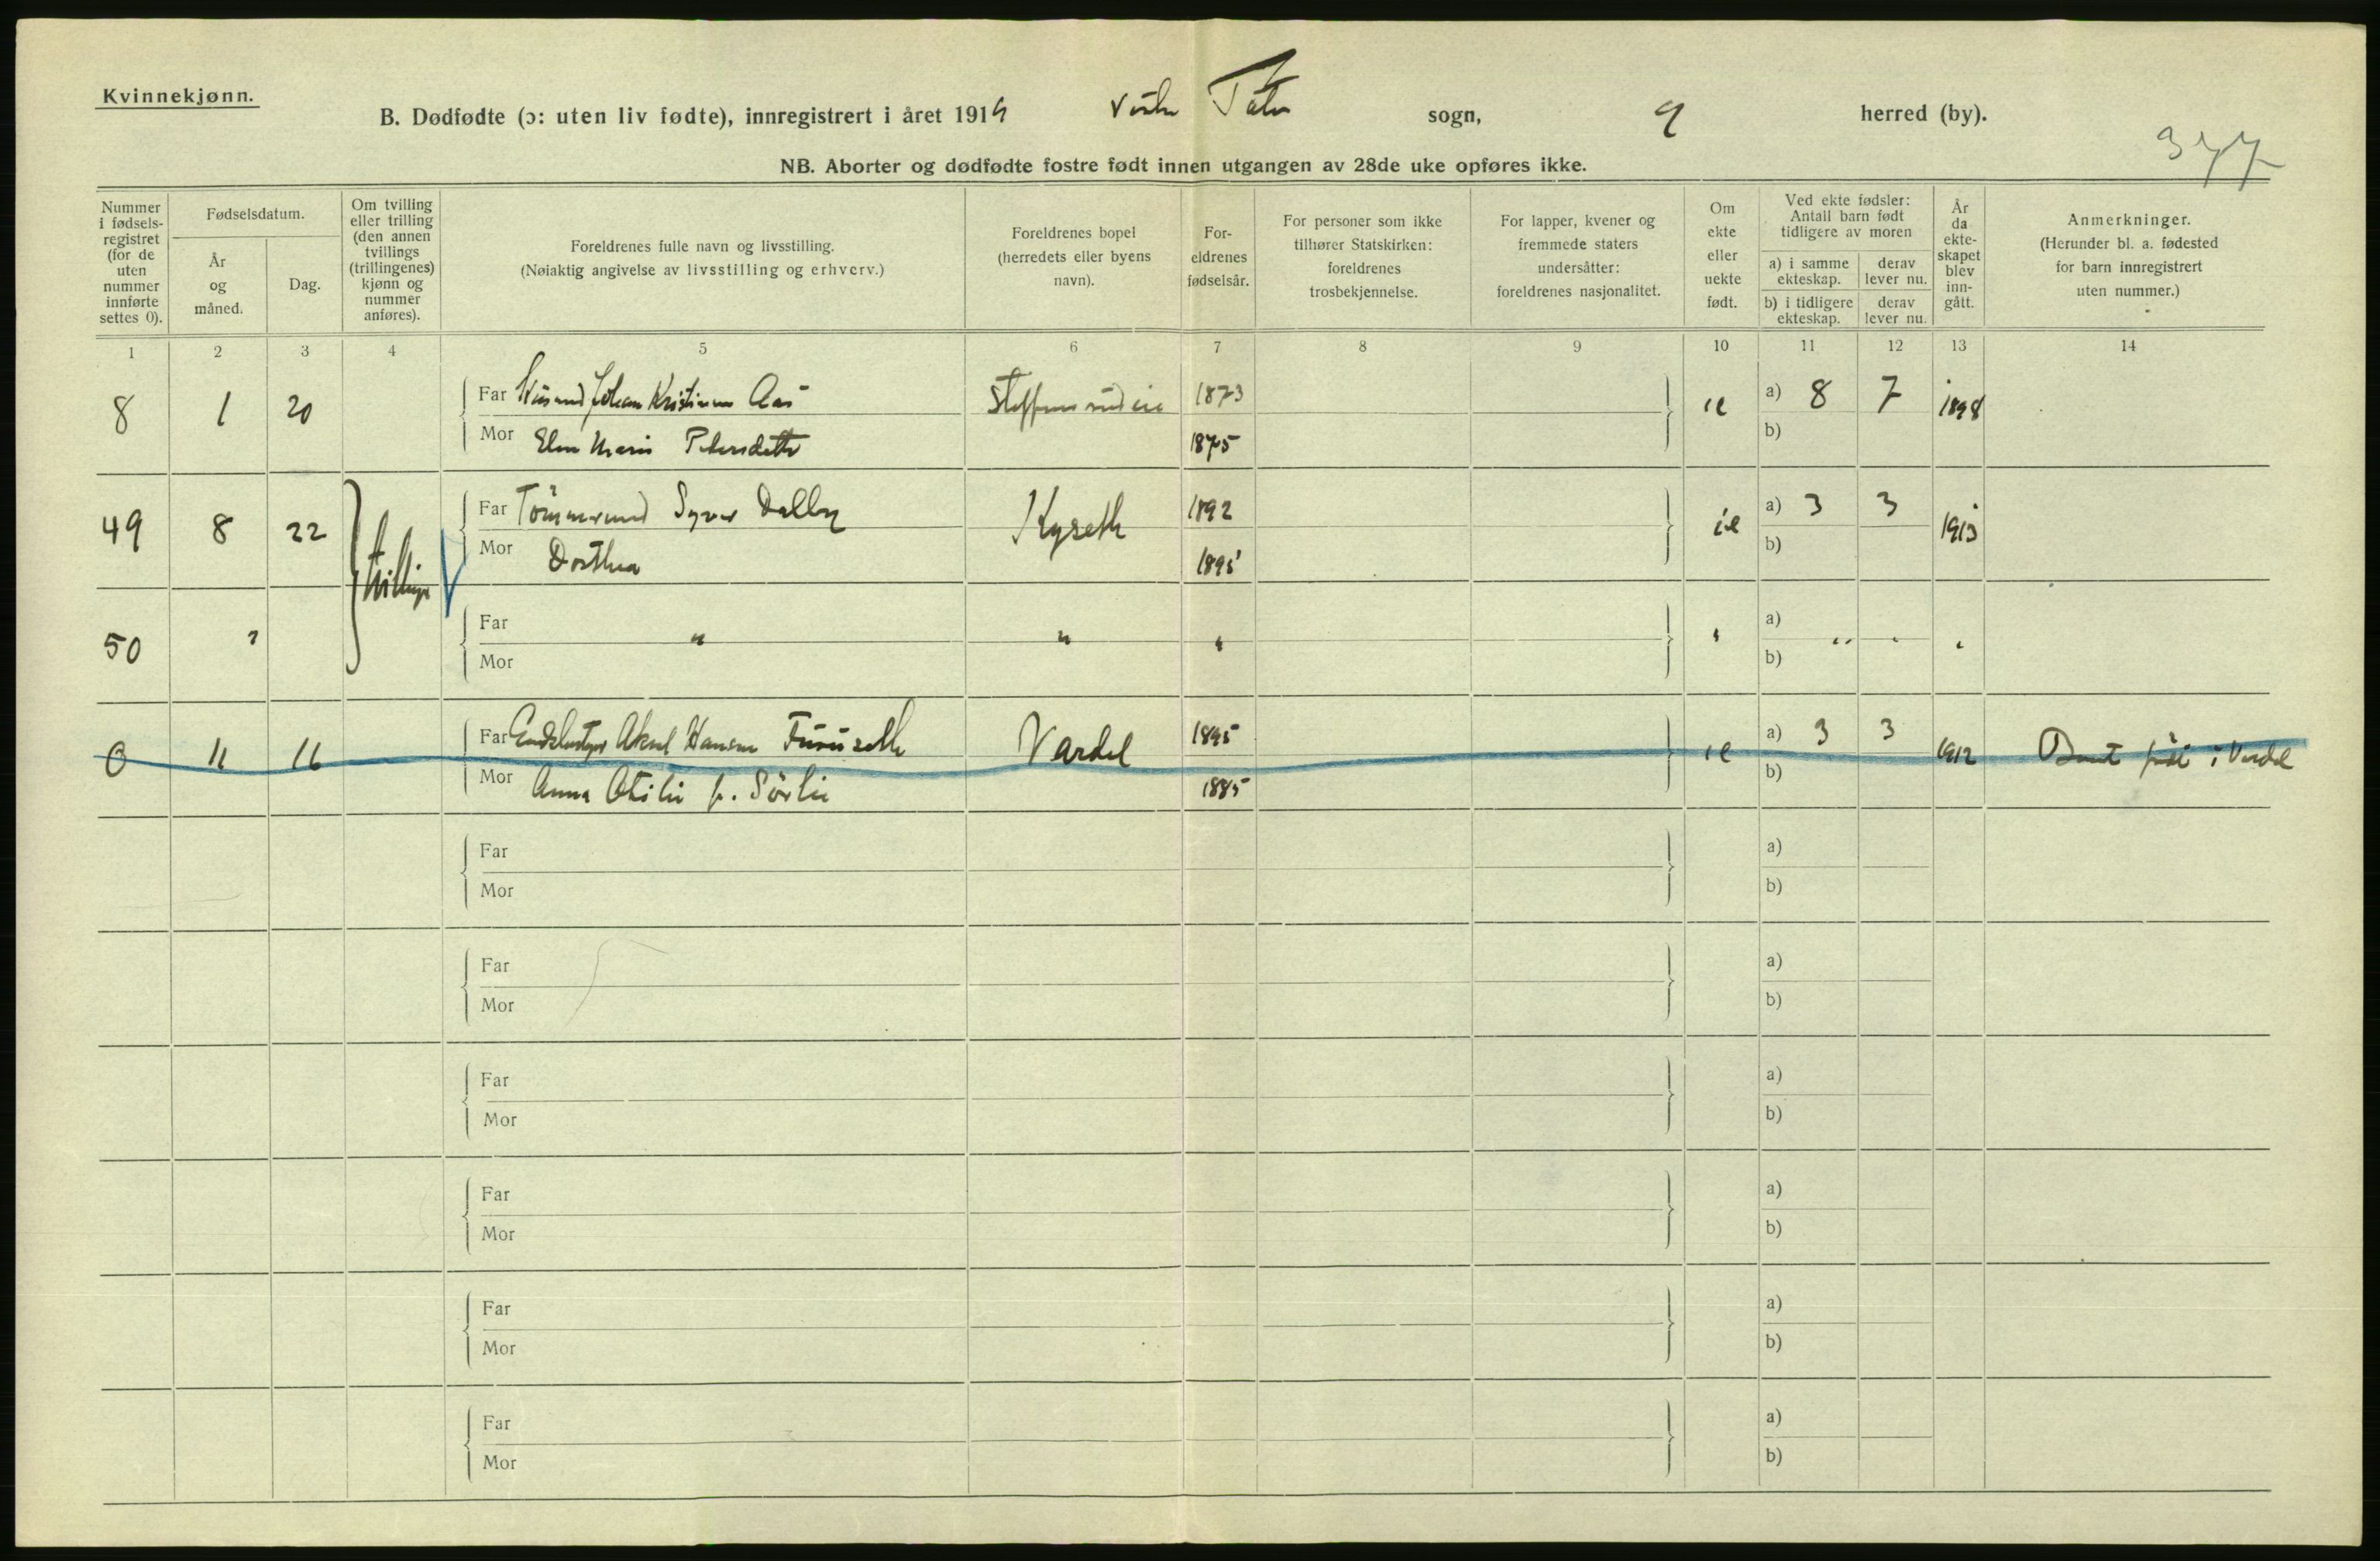 Kvinnekjønn.
B. Dødfødte (ɔ: uten liv fødte), innregistrert i året 1919 Vestre Toten sogn, herred (by).
377
NB. Aborter og dødfødte fostre født innen utgangen av 28de uke opføres ikke.
Nummer i fødsels-registret (for de uten nummer innførte settes 0).
Fødselsdatum.
År og måned.
Dag.
Om tvilling eller trilling (den annen tvillings (trillingenes) kjønn og nummer anføres).
Foreldrenes fulle navn og livsstilling.
(Nøiaktig angivelse av livsstilling og erhverv.)
Foreldrenes bopel (herredets eller byens navn).
For-eldrenes fødselsår.
For personer som ikke tilhører Statskirken: foreldrenes trosbekjennelse.
For lapper, kvener og fremmede staters undersåtter: foreldrenes nasjonalitet.
Om ekte eller uekte født.
Ved ekte fødsler: Antall barn født tidligere av moren
a) i samme ekteskap.
derav lever nu.
b) i tidligere ekteskap.
derav lever nu.
År da ekte-skapet blev inn-gått.
Anmerkninger.
(Herunder bl. a. fødested for barn innregistrert uten nummer.)
1 2 3 4 5 6 7 8 9 10 11 12 13 14
8 1 20 Far Johan Kristian Aas 1873 a) 8 7 1898
Mor Elen Marie Petersdatter 1875 b)
49 8 22 Far Syver Dalby Kyseth 1892 a) 3 3 1913
tvillinger
Mor Dorthea 1895 b)
50 " Far " " " " a) " " "
Mor b)
0 11 16 Far Aksel Hansen Furuseth Vardal 1895 a) 3 3 1912 født i Vardal
Mor Anna Otilie f. Sørlie 1885 b)
Far a)
Mor b)
Far a)
Mor b)
Far a)
Mor b)
Far a)
Mor b)
Far a)
Mor b)
Far a)
Mor b)